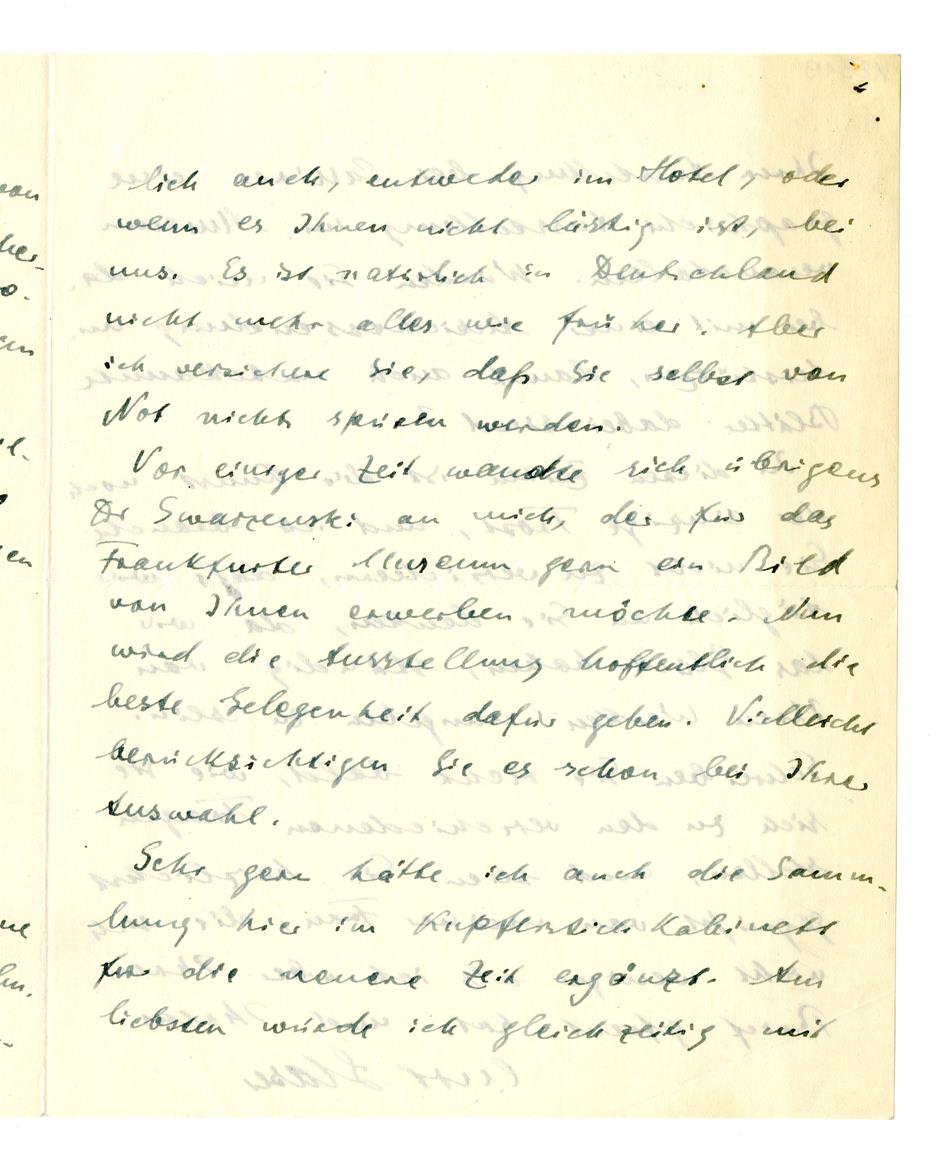 lich auch, entweder im Hotel, oder
wenn es Ihnen nicht lästig ist, bei
uns. Es ist natürlich in Deutschland
nicht mehr alles wie früher. Aber
ich versichere Sie, daß Sie selbst von
Not nichts spüren werden.
Vor einiger Zeit wandte sich übrigens
Dr Swarzenski an mich, der für das
Frankfurter Museum gern ein Bild
von Ihnen erwerben möchte. Nun
wird die Ausstellung hoffentlich die
beste Gelegenheit dafür geben. Vielleicht
berücksichtigen Sie es schon bei Ihrer
Auswahl.
Sehr gern hätte ich auch die Samm-
lung hier im Kupferstichkabinett
für die neuere Zeit ergänzt. Am
liebsten würde ich gleichzeitig mit